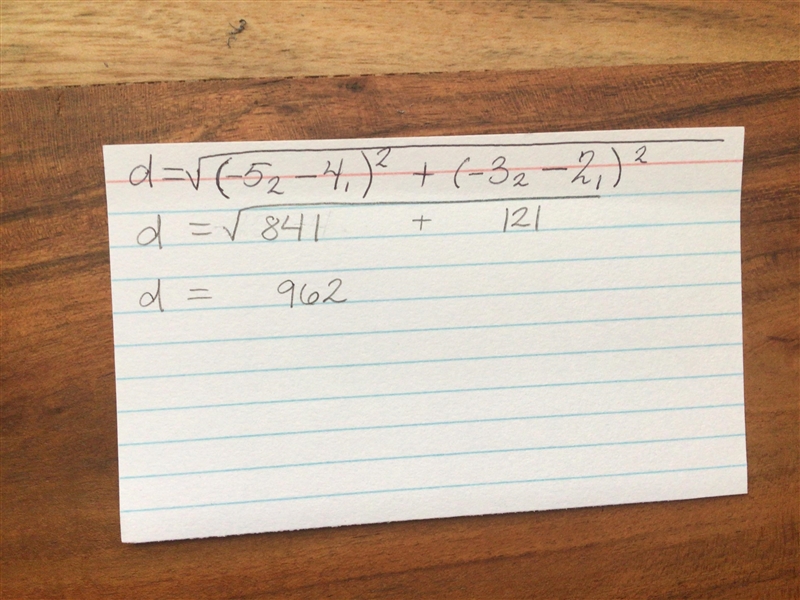 d=√(-5₂ - 4₁)² + (-3₂ - 2₁)²
d = √841 + 121
d = 962